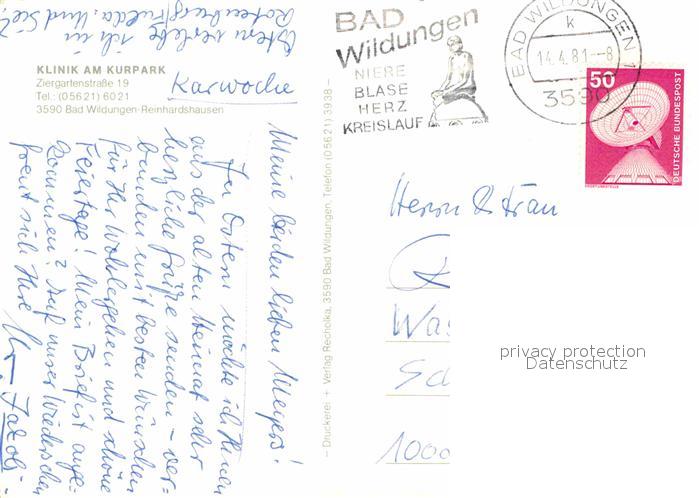 Ostern verlebe ich in
Rotenburg/Fulda. Und Sie?
KLINIK AM KURPARK
Ziergartenstraße 19
Tel.: (05621) 6021
3590 Bad Wildungen-Reinhardshausen
Karwoche
Meine beiden lieben Meyers!
Zu Ostern möchte ich Ihnen
aus der alten Heimat sehr
herzliche Grüße senden – ver-
bunden mit besten Wünschen
für Ihr Wohlergehen und schöne
Feiertage! Mein Brief ist ange-
kommen? Auf unser Wiedersehen
freut sich Ihre
– Druckerei + Verlag Recholka, 3590 Bad Wildungen, Telefon (05621) 3938 –
BAD
Wildungen
NIERE
BLASE
HERZ
KREISLAUF
BAD WILDUNGEN 1
k
14.4.81.-8
3590
50
DEUTSCHE BUNDESPOST
Herrn & Frau
Wa
Sc
1000
privacy protection
Datenschutz